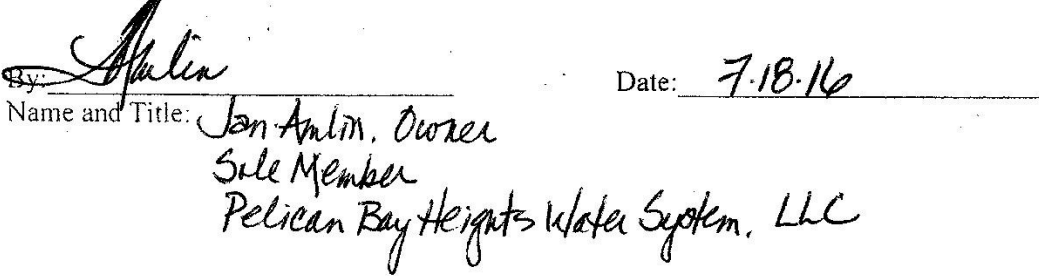 By: Date: 7.18.16
Name and Title: Jan Amlin, Owner
Sole Member
Pelican Bay Heights Water System, LLC